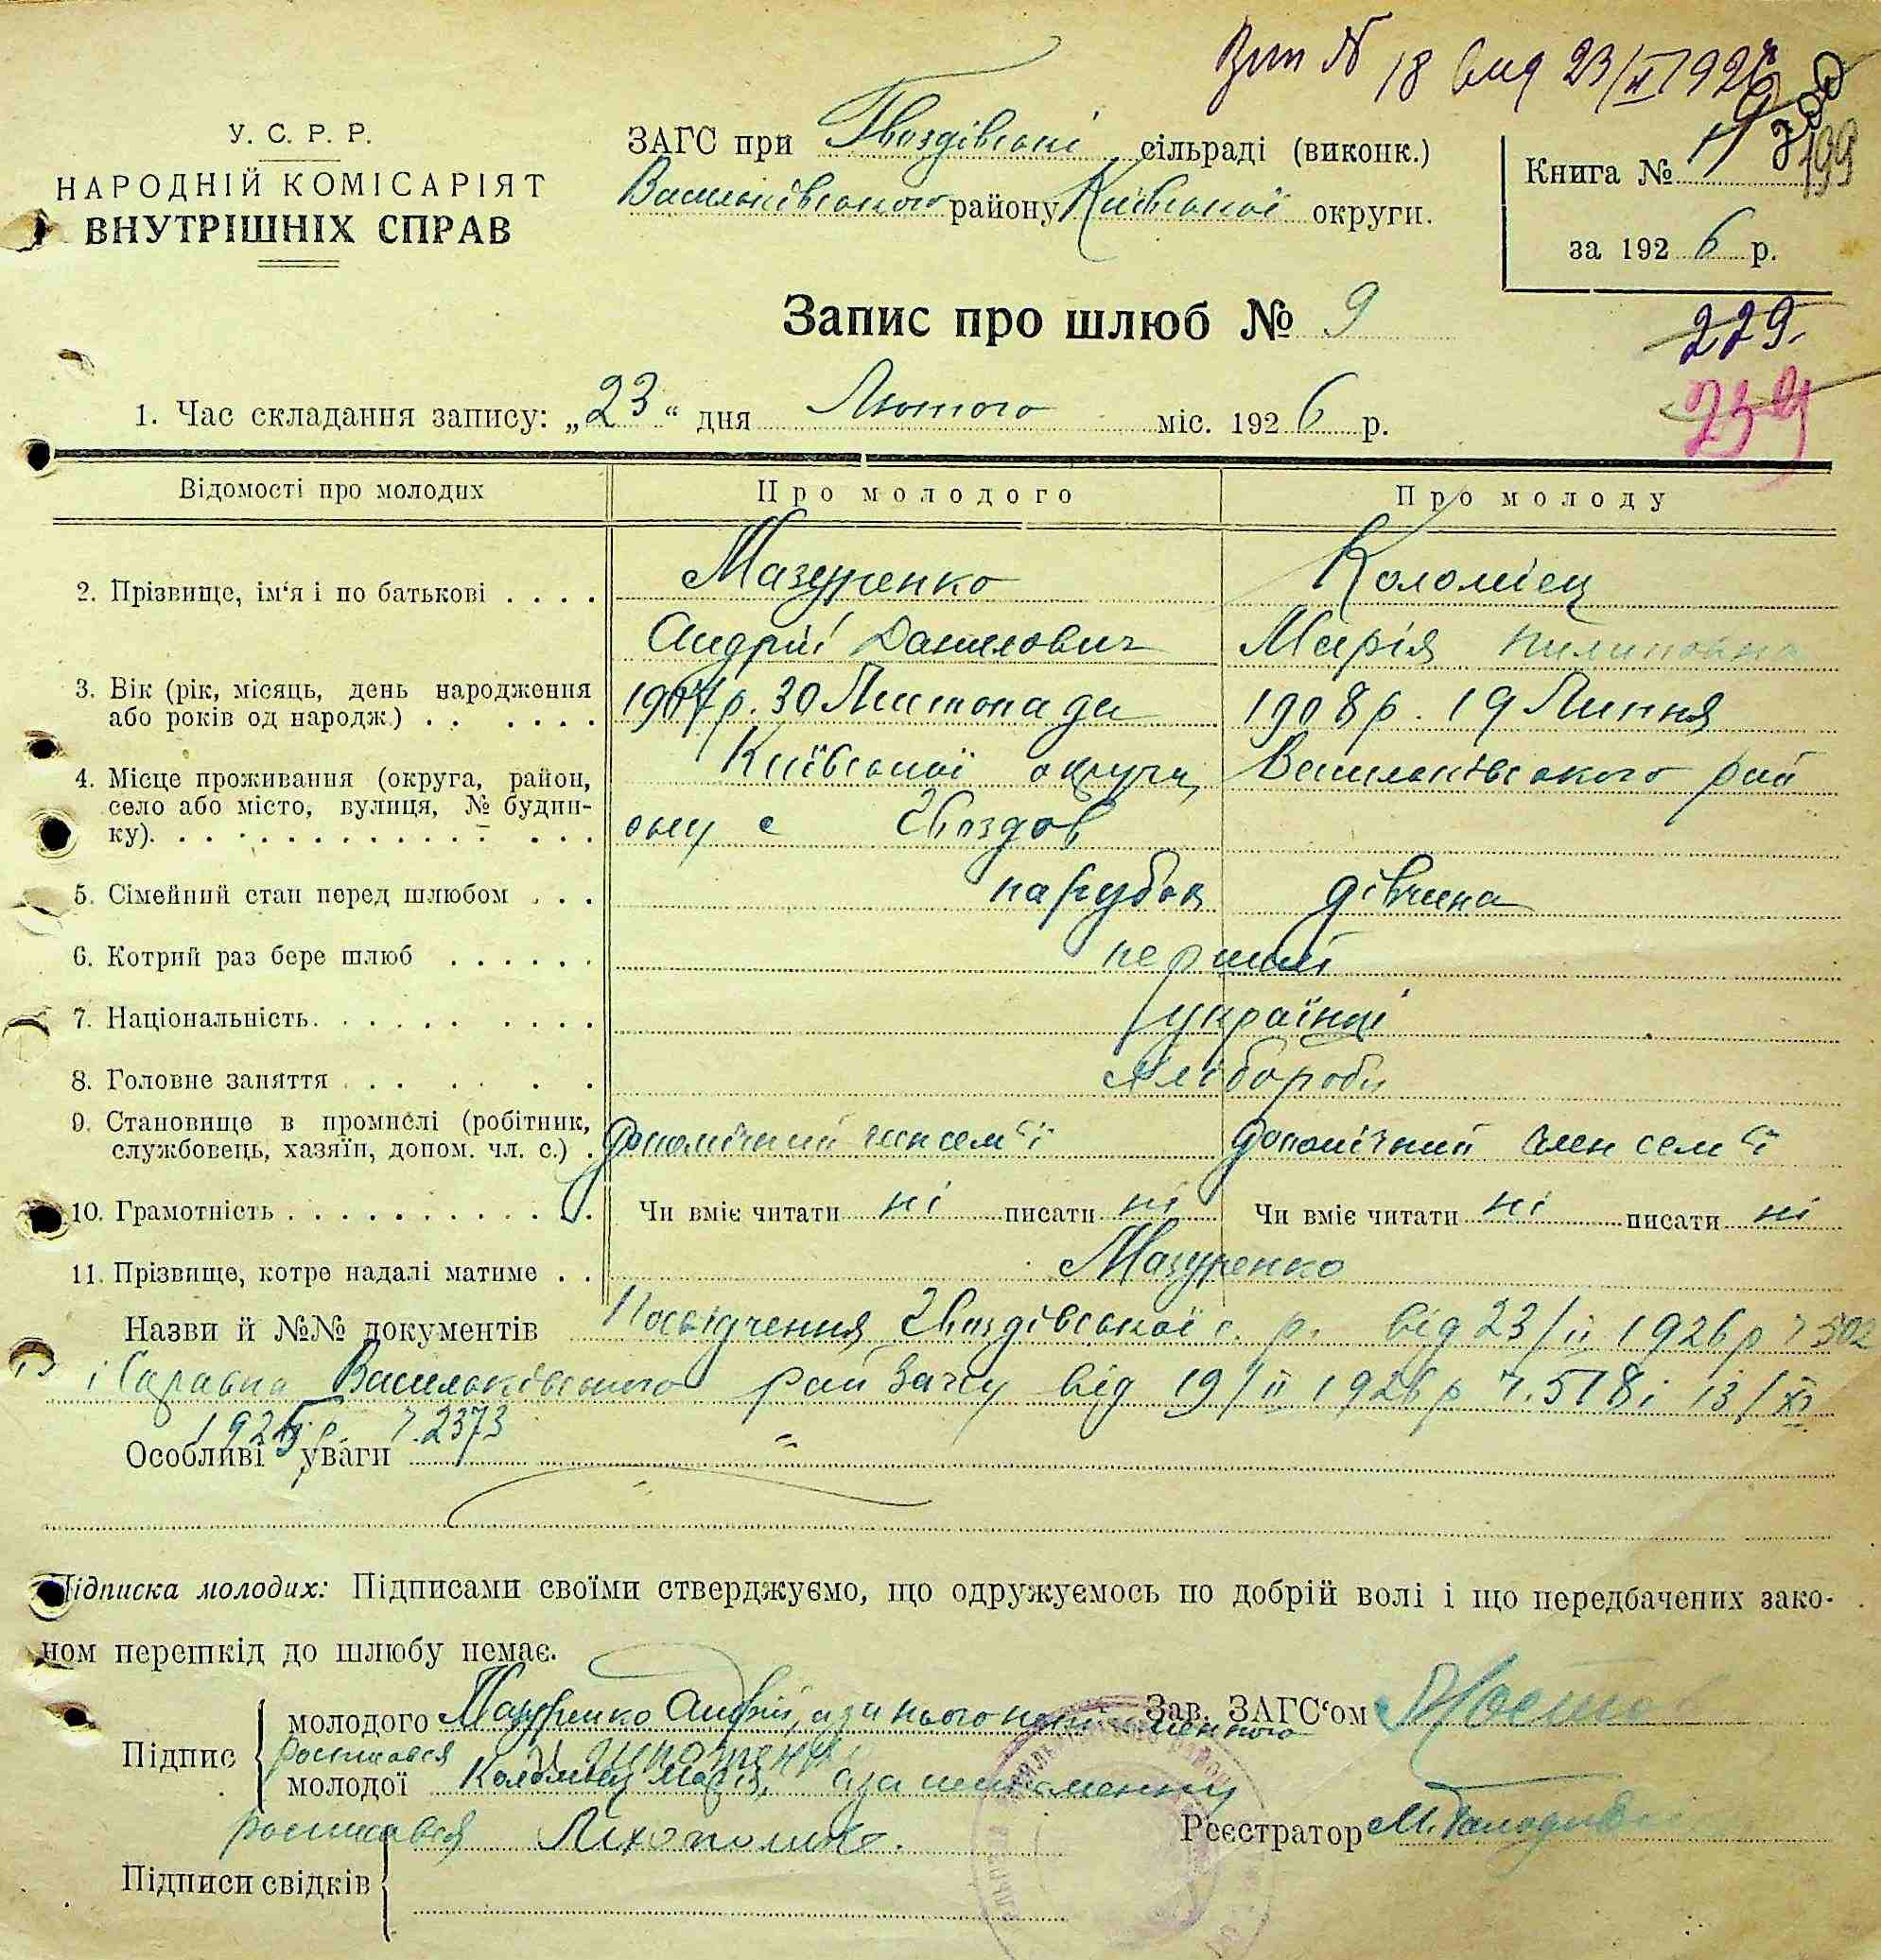 18 від 23/II 192
У. С. Р. Р.
НАРОДНІЙ КОМІСАРІЯТ
ВНУТРІШНІХ СПРАВ
ЗАГС при Гвоздівські сільраді (виконк.)
Васильківського району Київської округи.
Книга №
199
за 1926 р.
Запис про шлюб № 9
229.
239
1. Час складання запису: „23“ дня Лютого міс. 1926 р.
Відомості про молодих Про молодого Про молоду
2. Прізвище, ім'я і по батькові . . . . Мазуренко Коломієц
Андрій Данилович Марія Пилиповна
3. Вік (рік, місяць, день народження 1907 р. 30 Листопада 1908 р. 19 Липня
або років од народж.) . . . . . .
4. Місце проживання (округа, район, Київської округи, Васильківського рай
село або місто, вулиця, № будин- ону с Гвоздов
ку). . . . . . . . . . . . . . . .
5. Сімейний стан перед шлюбом . . . парубок дівчина
6. Котрий раз бере шлюб . . . . . . перший
7. Національність. . . . . . . . . . українці
8. Головне заняття . . . . . . . хлібороби
9. Становище в промислі (робітник, допомічний член сем'ї допомічний член сем'ї
службовець, хазяїн, допом. чл. с.) .
10. Грамотність . . . . . . . . . . . . Чи вміє читати ні писати ні Чи вміє читати ні писати ні
11. Прізвище, котре надалі матиме . . Мазуренко
Назви й №№ документів Посвідчення Гвоздівської с. р. від 23/II 1926 р ч 502
і Справка Васильківського рай Загсу від 19/II 1926 р ч. 518 і 13/XI
1925 р. ч. 2373
Особливі уваги
Підписка молодих: Підписами своїми стверджуємо, що одружуємось по добрій волі і що передбачених зако-
ном перешкід до шлюбу немає.
Підпис
молодого Мазуренко Андрій, а за нього неписьменного
росписався
молодої Коломієц Марія, а за неписьменну
росписався
Зав. ЗАГС'ом
Реєстратор
Підписи свідків